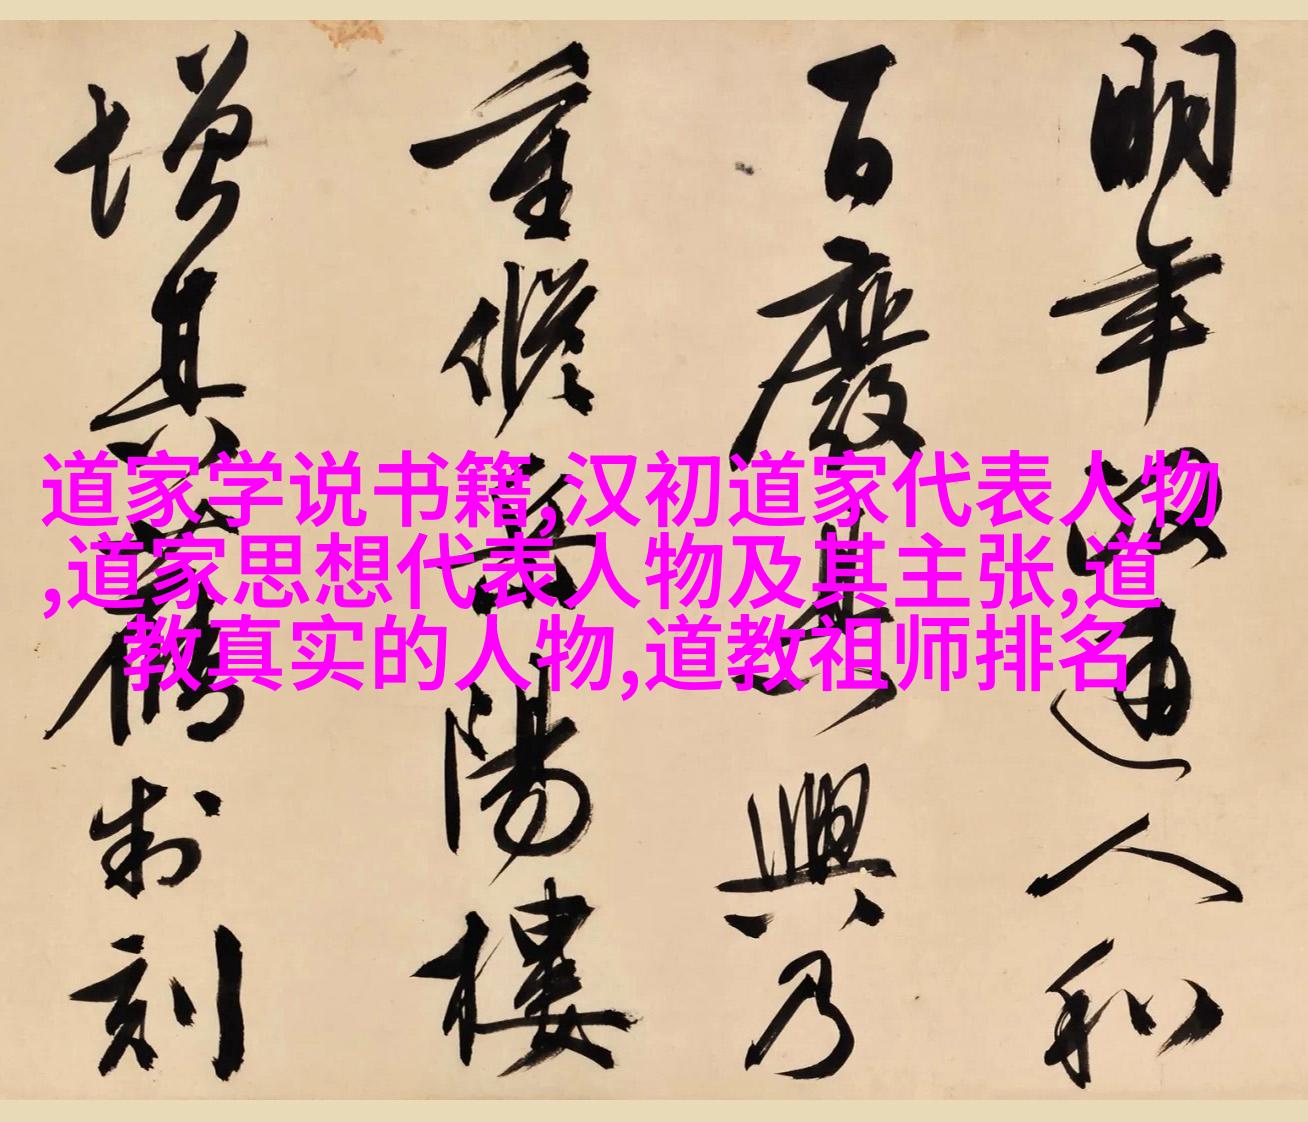 明年政通人和
百廢具興乃
重修岳陽樓
增其舊制刻
道家学说书籍,汉初道家代表人物
,道家思想代表人物及其主张,道
教真实的人物,道教祖师排名